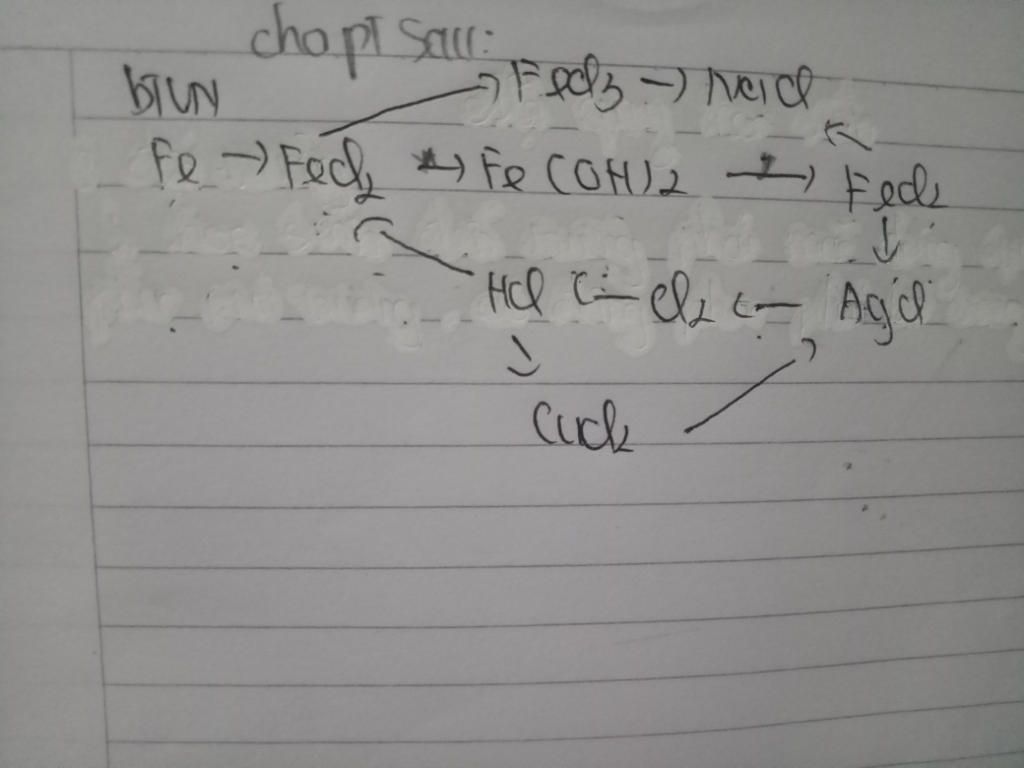 cho pT sau:
BTVN
→ FeCl3 → NaCl
Fe → FeCl2 → Fe(OH)2 → FeCl2
HCl ← Cl2 ← AgCl
CuCl2